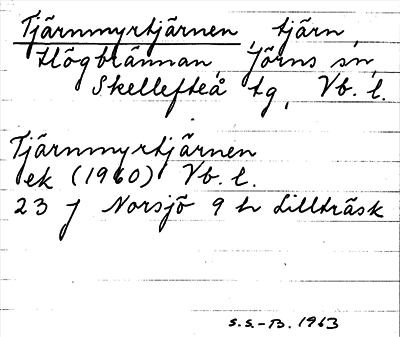 Tjärnmyrtjärnen, tjärn,
Högbrännan, Jörns sn,
Skellefteå tg, Vb. l.
Tjärnmyrtjärnen
ek (1960) Vb. l.
23 J Norsjö 9 h Lillträsk
S.S.-B. 1963